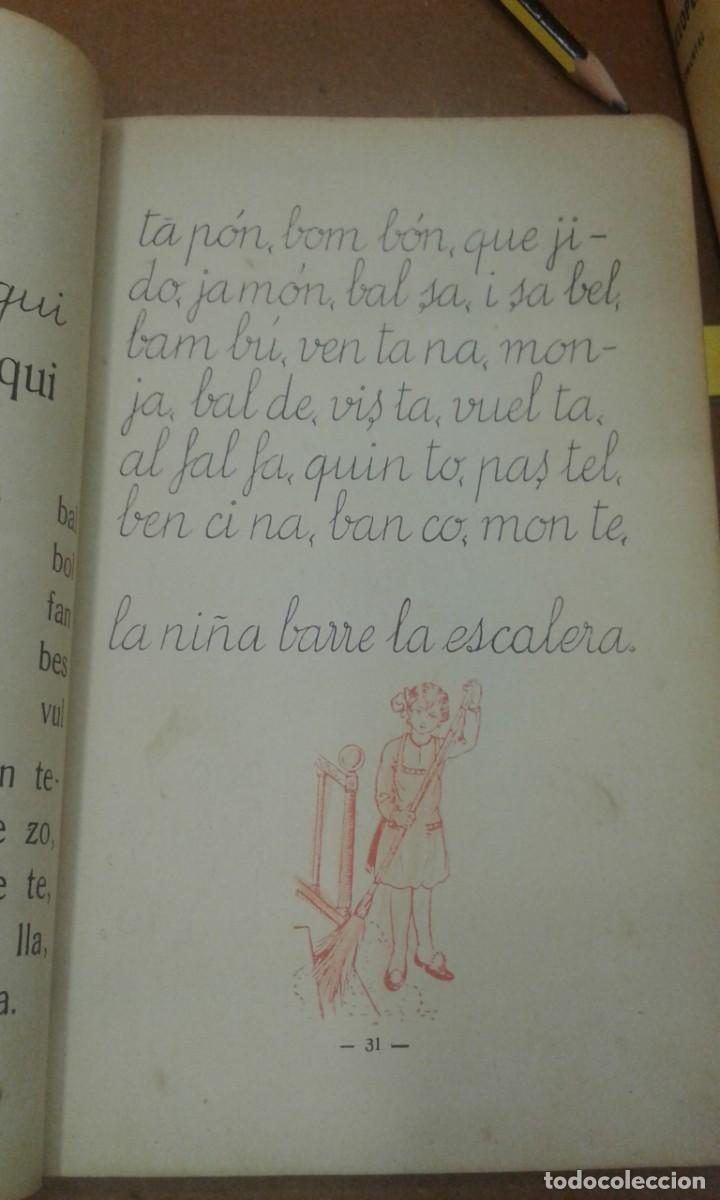 qui
qui
bal
bol
fan
bes
vul
n te-
e zo,
e te,
lla,
a.
tā pón, bom bón, que ji-
do, ja món, bal sa, i sa bel,
bam bú, ven ta na, mon-
ja, bal de, vis ta, vuel ta,
al fal fa, quin to, pas tel,
ben ci na, ban co, mon te,
la niña barre la escalera.
— 31 —
todocoleccion